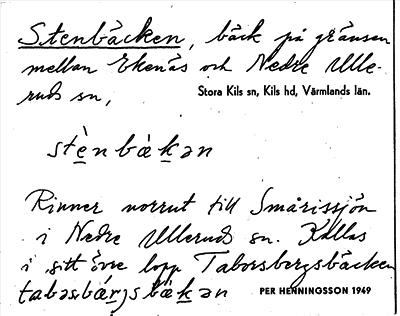 Stenbäcken, bäck på gränsen
mellan Ekenäs och Nedre Ulle-
ruds sn,
Stora Kils sn, Kils hd, Värmlands län.
stè̱nbæḵən
Rinner norrut till Smårissjön
i Nedre Ulleruds sn. Kallas
i sitt övre lopp Taborsbergsbäcken
PER HENNINGSSON 1949